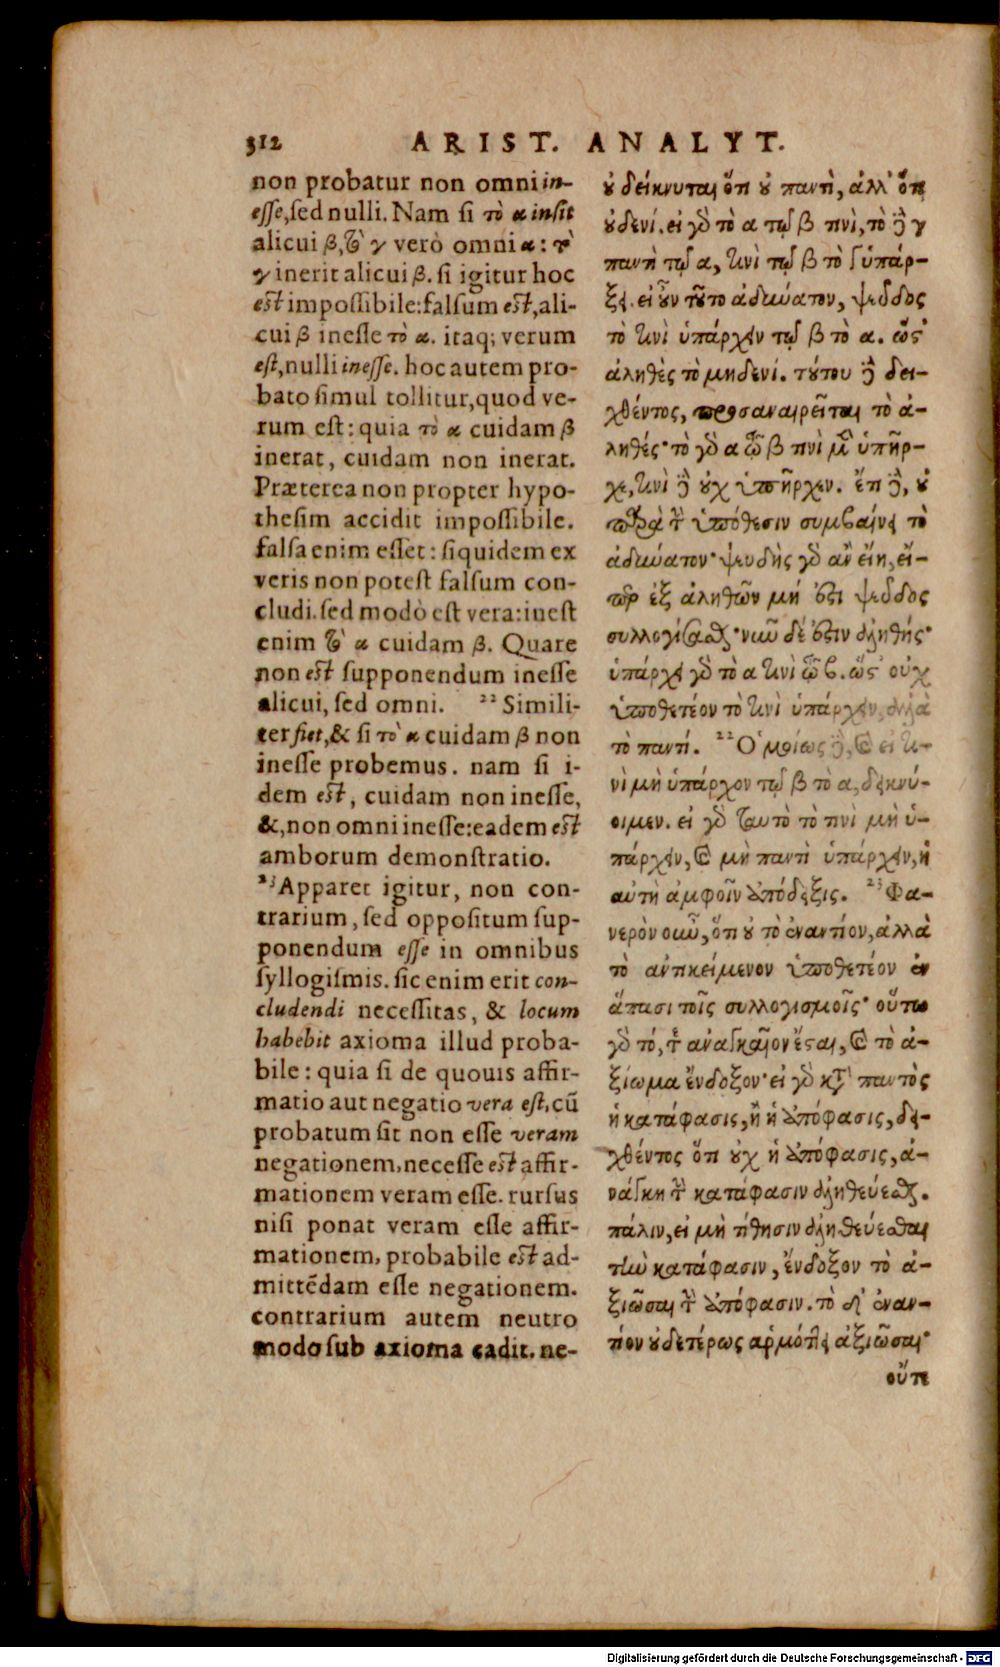 312 ARIST. ANALYT.
non probatur non omni in-
esse, sed nulli. Nam si τὸ α insit
alicui β, τὸ γ verò omni α: τὸ
γ inerit alicui β. si igitur hoc
est impossibile: falsum est, ali-
cui β inesse τὸ α. itaq; verum
est, nulli inesse. hoc autem pro-
bato simul tollitur, quod ve-
rum est: quia τὸ α cuidam β
inerat, cuidam non inerat.
Præterea non propter hypo-
thesim accidit impossibile.
falsa enim esset: siquidem ex
veris non potest falsum con-
cludi. sed modò est vera: inest
enim τὸ α cuidam β. Quare
non est supponendum inesse
alicui, sed omni. 22 Simili-
ter fiet, & si τὸ α cuidam β non
inesse probemus. nam si i-
dem est, cuidam non inesse,
&, non omni inesse: eadem est
amborum demonstratio.
23 Apparet igitur, non con-
trarium, sed oppositum sup-
ponendum esse in omnibus
syllogismis. sic enim erit con-
cludendi necessitas, & locum
habebit axioma illud proba-
bile: quia si de quouis affir-
matio aut negatio vera est, cū
probatum sit non esse veram
negationem, necesse est affir-
mationem veram esse. rursus
nisi ponat veram esse affir-
mationem, probabile est ad-
mittēdam esse negationem.
contrarium autem neutro
modo sub axioma cadit. ne-
οὐ δείκνυται ὅτι οὐ παντὶ, ἀλλ' ὅτι
οὐδενί. εἰ γὸ τὸ α τῷ β τινὶ, τὸ ὃ γ
παντὶ τῷ α, τινὶ τῷ β τὸ γ ὑπάρ-
ξει. εἰ οὖν τοῦτο ἀδύνατον, ψεῦδος
τὸ τινὶ ὑπάρχειν τῷ β τὸ α. ὥς'
ἀληθὲς τὸ μηδενί. τούτου ὃ δει-
χθέντος, προσαναιρεῖται τὸ ἀ-
ληθές· τὸ γὸ α τῷ β τινὶ μὲν ὑπῆρ-
χε, τινὶ ὃ οὐχ ὑπῆρχεν. ἔτι ὃ, οὐ
παρὰ τὴν ὑπόθεσιν συμβαίνει τὸ
ἀδύνατον· ψευδὴς γὸ ἂν εἴη, εἴ-
περ ἐξ ἀληθῶν μή ἐστι ψεῦδος
συλλογίσασθαι· νῦν δέ ἐστιν ἀληθής·
ὑπάρχει γὸ τὸ α τινὶ τῷ β. ὥς' οὐχ
ὑποθετέον τὸ τινὶ ὑπάρχειν, ἀλλὰ
τὸ παντί. 22 Ὁμοίως ὃ, καὶ εἰ τι-
νὶ μὴ ὑπάρχον τῷ β τὸ α, δεικνύ-
οιμεν. εἰ γὸ ταυτὸ τὸ τινὶ μὴ ὑ-
πάρχειν, καὶ μὴ παντὶ ὑπάρχειν, ἡ
αὐτὴ ἀμφοῖν ἀπόδειξις. 23 Φα-
νερὸν οὖν, ὅτι οὐ τὸ ἐναντίον, ἀλλὰ
τὸ ἀντικείμενον ὑποθετέον ἐν
ἅπασι τοῖς συλλογισμοῖς· οὕτω
γὸ τό, τε ἀναγκαῖον ἔσται, καὶ τὸ ἀ-
ξίωμα ἔνδοξον· εἰ γὸ κατὰ παντὸς
ἡ κατάφασις, ἢ ἡ ἀπόφασις, δει-
χθέντος ὅτι οὐχ ἡ ἀπόφασις, ἀ-
νάγκη τὴν κατάφασιν ἀληθεύεσθαι.
πάλιν, εἰ μὴ τίθησιν ἀληθεύεσθαι
τὴν κατάφασιν, ἔνδοξον τὸ ἀ-
ξιῶσαι τὴν ἀπόφασιν. τὸ δ' ἐναν-
τίον οὐδετέρως ἁρμόττει ἀξιῶσαι·
οὔτε
Digitalisierung gefördert durch die Deutsche Forschungsgemeinschaft - DFG